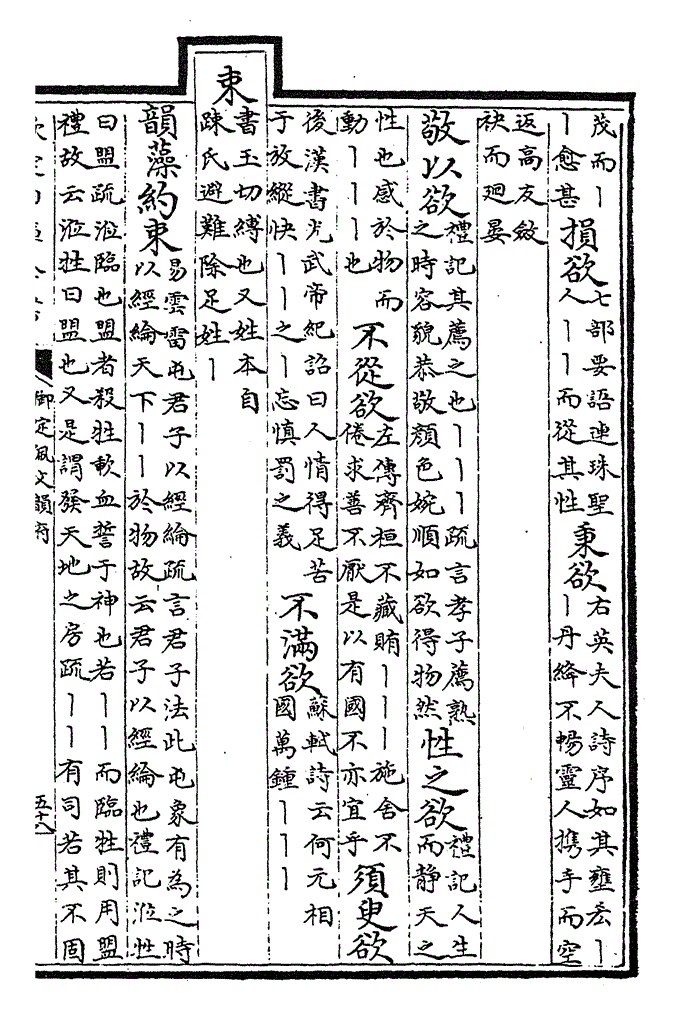 茂而丨
丨愈甚
損欲
七部要語連珠聖
人丨丨而從其性
秉欲
右英夫人詩序如其壅忝丨
丨丹絳不暢靈人携手而空
返高友斂
袂而廻晏
敬以欲
禮記其薦之也丨丨丨疏言孝子薦熟
之時容貌恭敬顔色婉順如欲得物然
性之欲
禮記人生
而静天之
性也感於物而
動丨丨丨也
不從欲
左傳齊桓不藏賄丨丨丨施舍不
倦求善不厭是以有國不亦宜乎
須臾欲
後漢書光武帝紀詔曰人情得足苦
于放縱快丨丨之丨忘慎罰之義
不滿欲
蘇軾詩云何元相
國萬鍾丨丨丨
束
書玉切縛也又姓本自
踈氏避難除足姓丨
韻藻約束
易雲雷屯君子以經綸疏言君子法此屯象有為之時
以經綸天下丨丨於物故云君子以經綸也禮記涖牲
曰盟疏涖臨也盟者殺牲歃血誓于神也若丨丨而臨牲則用盟
禮故云涖牲曰盟也又是謂發天地之房疏丨丨有司若其不固
欽定四庫全書
御定佩文韻府
五十八